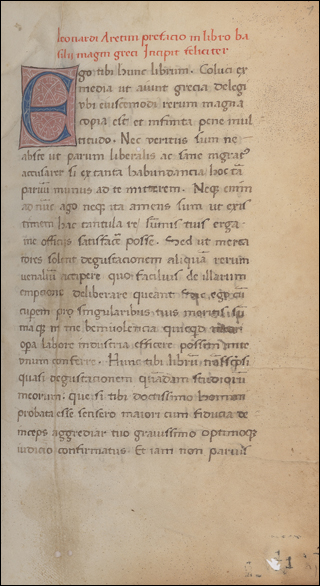 Leonardi Aretini prefacio in libro ba
silij magni greci Incipit feliciter
Ego tibi hunc librum. Coluci ex
media ut aiunt grecia delegi
vbi eiuscemodi rerum magna
copia est et infinita pene mul
titudo. Nec veritus sum ne
abste ut parum liberalis ac sane ingratꝰ
accusarer si ex tanta habundancia hoc tā
parvū munus ad te mitterem. Neqꝫ enim
ad nūc ago neqꝫ ita amens sum ut exis
timem hac tantula re sūmis tuis erga
me officijs satisfacē posse. Sed ut merca
tores solent degustacionem aliquā rerum
venaliū accipere quo facilius de illarum
emptione deliberare queant
cuperem pro singularibus tuis meritis sū
maqꝫ in me beniuolencia quicqd
opa labore industria efficere possem
vnum conferre. Hunc tibi librū
quasi degustacionem quādam studiorū
meorum: que si tibi doctissimo homini
probata esse sensero maiori cum fiducia de
inceps aggrediar tuo gravissimo optimoqꝫ
iudicio confirmatus. Et iam non parvis
1